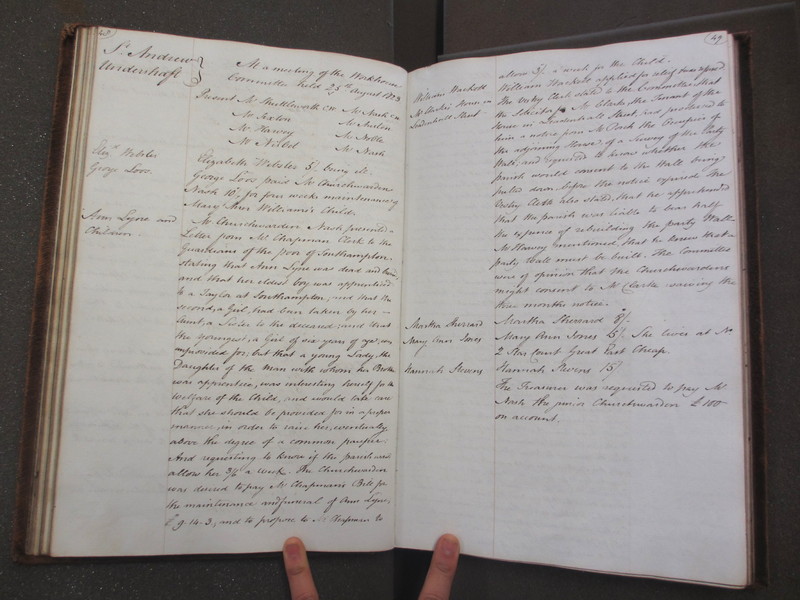 48
St Andrew
Undershaft
At a meeting of the Workhouse
Committee held 25th August 1823
Present Mr Shuttleworth CW Mr Nash CW
Mr Sexton Mr
Mr Harvey Mr Noble
Mr Mr Nash
Elizth Webster
Elizabeth Webster 5/- being ill.
George Love.
George Love paid Mr Churchwarden
Nash 10/- for four weeks maintenance of
Mary Ann William's Child.
Ann Lyne and
Children.
Mr Churchwarden Nash presented a
Letter from Mr Chapman Clerk to the
Guardians of the poor of Southampton,
stating that Ann Lyne was dead and buried
and that her eldest boy was apprenticed
to a Taylor at Southampton, and that the
second, a Girl, had been taken by her
Aunt, a Sister to the deceased; and that
the youngest, a Girl of six years of age, was
unprovided for; but that a young Lady, the
Daughter of the Man with whom her Brother
was apprentice, was interesting herself for the
welfare of the Child, and would take care
that she should be provided for in a proper
manner, in order to raise her, eventually
above the degree of a common pauper.
And requesting to know if the parish would
allow her 3/6 a week. The Churchwarden
was desired to pay Mr Chapman's Bill for
the maintenance and funeral of Ann Lyne,
£9.14.3, and to propose to Mr Chapman to
49
allow 3/- a week for the Child.
William Hackett
William Hackett applied for relief
Mr Clarke's House in
Leadenhall Street
The Vestry Clerk stated to the Committee that
the Solicitor for Mr Clarke the Tenant of the
House in Leadenhall Street, had produced to
him a notice from Mr Clark the Occupier of
the adjoining House, of a Survey of the Party
Wall; and required to know whether the
parish would consent to the Wall being
pulled down before the notice expired. The
Vestry Clerk also stated, that he apprehended
that the parish was liable to bear half
the expence of rebuilding the party Wall
Mr Harvey mentioned, that he knew that a
party Wall must be built. The Committee
were of opinion that the Churchwardens
might consent to Mr Clarke waiving the
three months notice.
Martha Sherrard
Martha Sherrard 8/-
Mary Ann Jones
Mary Ann Jones 5/- She lives at No
2 Star Court Great East Cheap.
Hannah Stevens
Hannah Stevens 15/-
The Treasurer was requested to pay Mr
Nash the junior Churchwarden £100
on account.